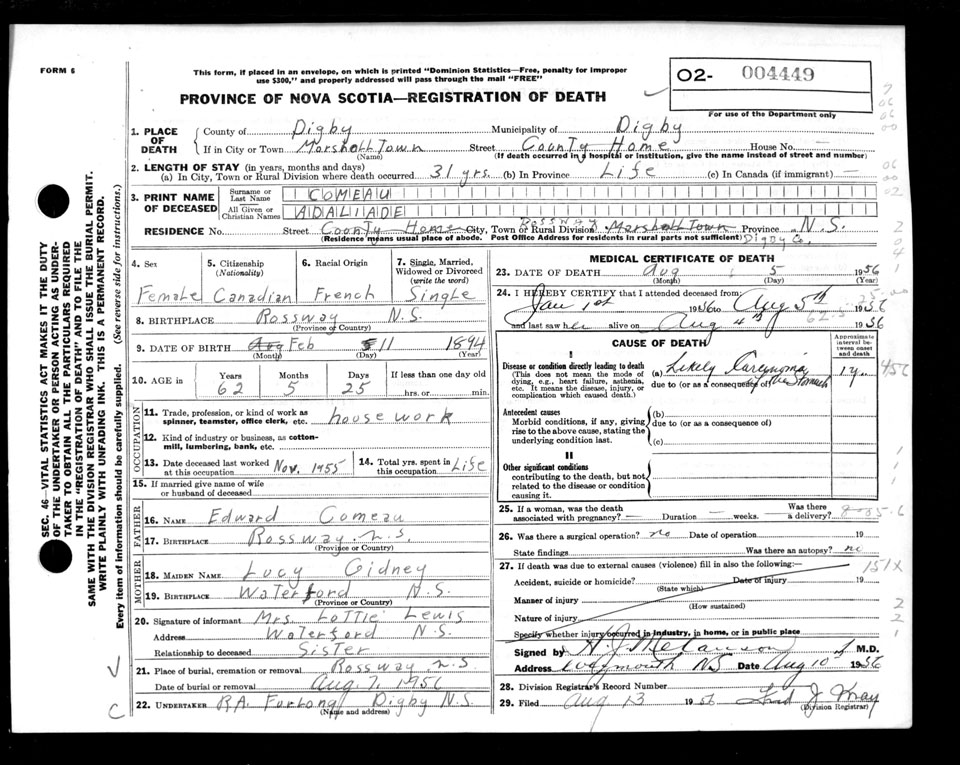 FORM 6
This form, if placed in an envelope, on which is printed "Dominion Statistics—Free, penalty for improper
use $300," and properly addressed will pass through the mail "FREE"
02- 004449
For use of the Department only
PROVINCE OF NOVA SCOTIA—REGISTRATION OF DEATH
SEC. 46—VITAL STATISTICS ACT MAKES IT THE DUTY
OF THE UNDERTAKER OR PERSON ACTING AS UNDER-
TAKER TO OBTAIN ALL THE PARTICULARS REQUIRED
IN THE "REGISTRATION OF DEATH" AND TO FILE THE
SAME WITH THE DIVISION REGISTRAR WHO SHALL ISSUE THE BURIAL PERMIT.
WRITE PLAINLY WITH UNFADING INK. THIS IS A PERMANENT RECORD.
Every item of information should be carefully supplied. (See reverse side for instructions.)
1. PLACE OF DEATH County of Digby Municipality of Digby
If in City or Town Marshall Town Street County Home House No. —
(Name) (If death occurred in a hospital or institution, give the name instead of street and number)
2. LENGTH OF STAY (in years, months and days)
(a) In City, Town or Rural Division where death occurred 31 yrs. (b) In Province Life (c) In Canada (if immigrant) —
3. PRINT NAME OF DECEASED Surname or Last Name COMEAU
All Given or Christian Names ADALIADE
RESIDENCE No. Street County Home City, Town or Rural Division Rossway Marshall Town Province N.S.
(Residence means usual place of abode. Post Office Address for residents in rural parts not sufficient) Digby Co.
4. Sex 5. Citizenship (Nationality) 6. Racial Origin 7. Single, Married, Widowed or Divorced (write the word)
Female Canadian French Single
8. BIRTHPLACE Rossway N.S.
(Province or Country)
9. DATE OF BIRTH Aug Feb 11 1894
(Month) (Day) (Year)
10. AGE in Years Months Days If less than one day old
62 5 25 hrs. or min.
OCCUPATION
11. Trade, profession, or kind of work as
spinner, teamster, office clerk, etc. house work
12. Kind of industry or business, as cotton-
mill, lumbering, bank, etc.
13. Date deceased last worked at this occupation Nov. 1955 14. Total yrs. spent in this occupation Life
15. If married give name of wife
or husband of deceased
FATHER
16. NAME Edward Comeau
17. BIRTHPLACE Rossway N.S.
(Province or Country)
MOTHER
18. MAIDEN NAME Lucy Gidney
19. BIRTHPLACE Waterford N.S.
(Province or Country)
20. Signature of informant Mrs. Lottie Lewis
Address Waterford N.S.
Relationship to deceased Sister
21. Place of burial, cremation or removal Rossway N.S
Date of burial or removal Aug. 7, 1956
22. UNDERTAKER R.A. Furlong Digby N.S.
(Name and address)
MEDICAL CERTIFICATE OF DEATH
23. DATE OF DEATH Aug 5 1956
(Month) (Day) (Year)
24. I HEREBY CERTIFY that I attended deceased from:
Jan 1st 1956 to Aug 5th 1956
and last saw her alive on Aug 4th 1956
CAUSE OF DEATH
Approximate interval between onset and death
I
Disease or condition directly leading to death
(This does not mean the mode of
dying, e.g., heart failure, asthenia,
etc. It means the disease, injury, or
complication which caused death.)
(a) Likely Carcynoma
due to (or as a consequence of) the Stomach
Antecedent causes
Morbid conditions, if any, giving
rise to the above cause, stating the
underlying condition last.
(b)
due to (or as a consequence of)
(c)
II
Other significant conditions
contributing to the death, but not
related to the disease or condition
causing it.
25. If a woman, was the death
associated with pregnancy? — Duration — weeks. Was there a delivery?
26. Was there a surgical operation? no Date of operation 19
State findings Was there an autopsy? no
27. If death was due to external causes (violence) fill in also the following:— 151X
Accident, suicide or homicide? Date of injury 19
(State which)
Manner of injury
(How sustained)
Nature of injury
Specify whether injury occurred in industry, in home, or in public place
Signed by M.D.
Address Weymouth NS Date Aug 10 1956
28. Division Registrar's Record Number
29. Filed Aug 13 1956
(Division Registrar)